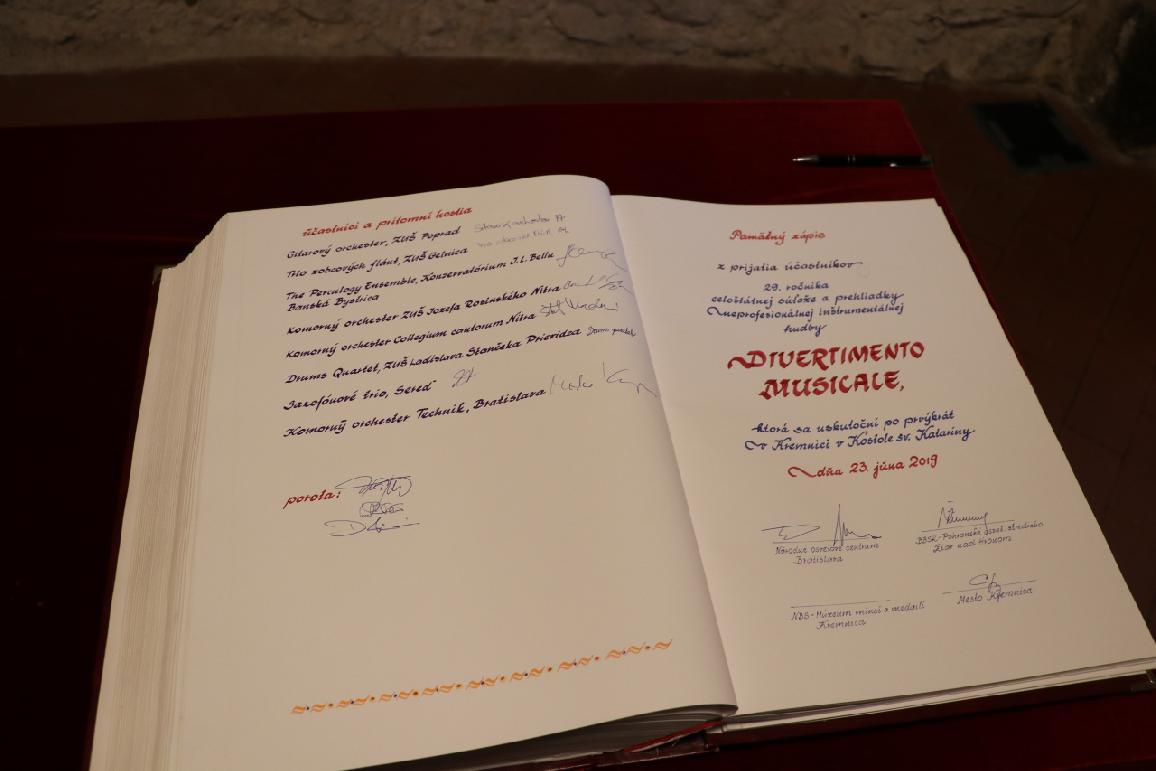 účastníci a prítomní hostia
Gitarový orchester, ZUŠ Poprad
Trio zobcových fláut, ZUŠ Gelnica
The Perculogy Ensemble, Konzervatórium J.L. Bellu
Banská Bystrica
Komorný orchester ZUŠ Jozefa Rosinského Nitra
Komorný orchester Collegium cantorum Nitra
Drums Quartet, ZUŠ Ladislava Stančeka Prievidza
Saxofónové trio, Sereď
Komorný orchester Technik, Bratislava
porota:
Pamätný zápis
z prijatia účastníkov
29. ročníka
celoštátnej súťaže a prehliadky
neprofesionálnej inštrumentálnej
hudby
DIVERTIMENTO
MUSICALE,
ktorá sa uskutoční po prvýkrát
v Kremnici v Kostole sv. Kataríny
dňa 23. júna 2019
Národné osvetové centrum
Bratislava
BBSK - Pohronské osvet. stredisko
Žiar nad Hronom
NBS - Múzeum mincí a medailí
Kremnica
Mesto Kremnica